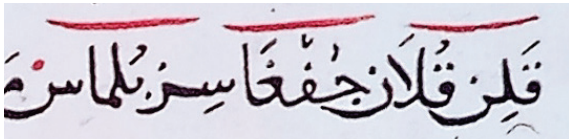 قَلِن قُلَان جُفْغَا سِز بُلماس